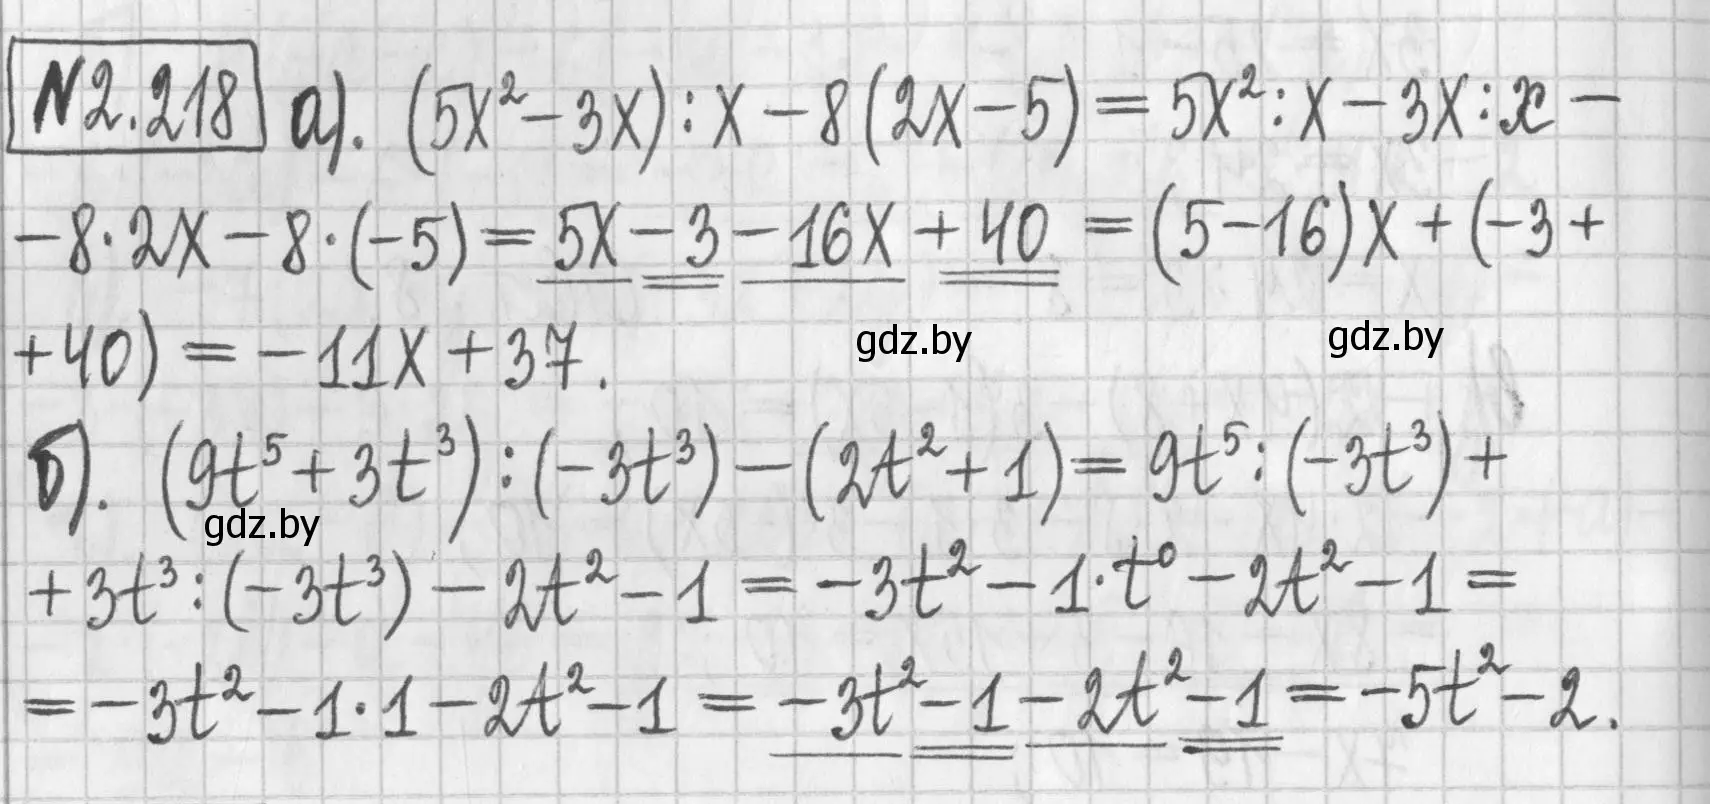 N2.218 а). (5x² - 3x) : x - 8(2x - 5) = 5x² : x - 3x : x -
- 8 · 2x - 8 · (-5) = 5x - 3 - 16x + 40 = (5 - 16)x + (-3 +
+ 40) = - 11x + 37.
gdz.by gdz.by
б). (9t⁵ + 3t³) : (-3t³) - (2t² + 1) = 9t⁵ : (-3t³) +
gdz.by
+ 3t³ : (-3t³) - 2t² - 1 = - 3t² - 1 · t⁰ - 2t² - 1 =
= - 3t² - 1 · 1 - 2t² - 1 = - 3t² - 1 - 2t² - 1 = - 5t² - 2.